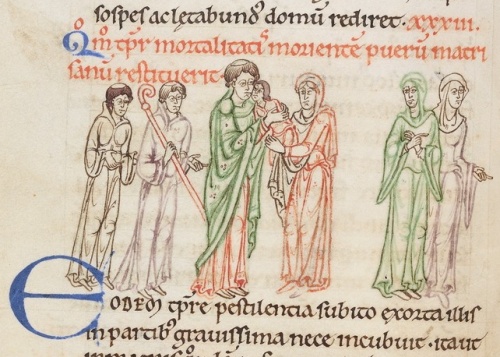 sospes ac lętabundꝰ domū rediret· XXXIII.
Qm̄ tp̄r mortalitatis morientē puerū matri
sanū restituerit·
EODEM tp̄re pestilentia subito exorta illis
in partibꝰ gravissima nece incubuit · itaut